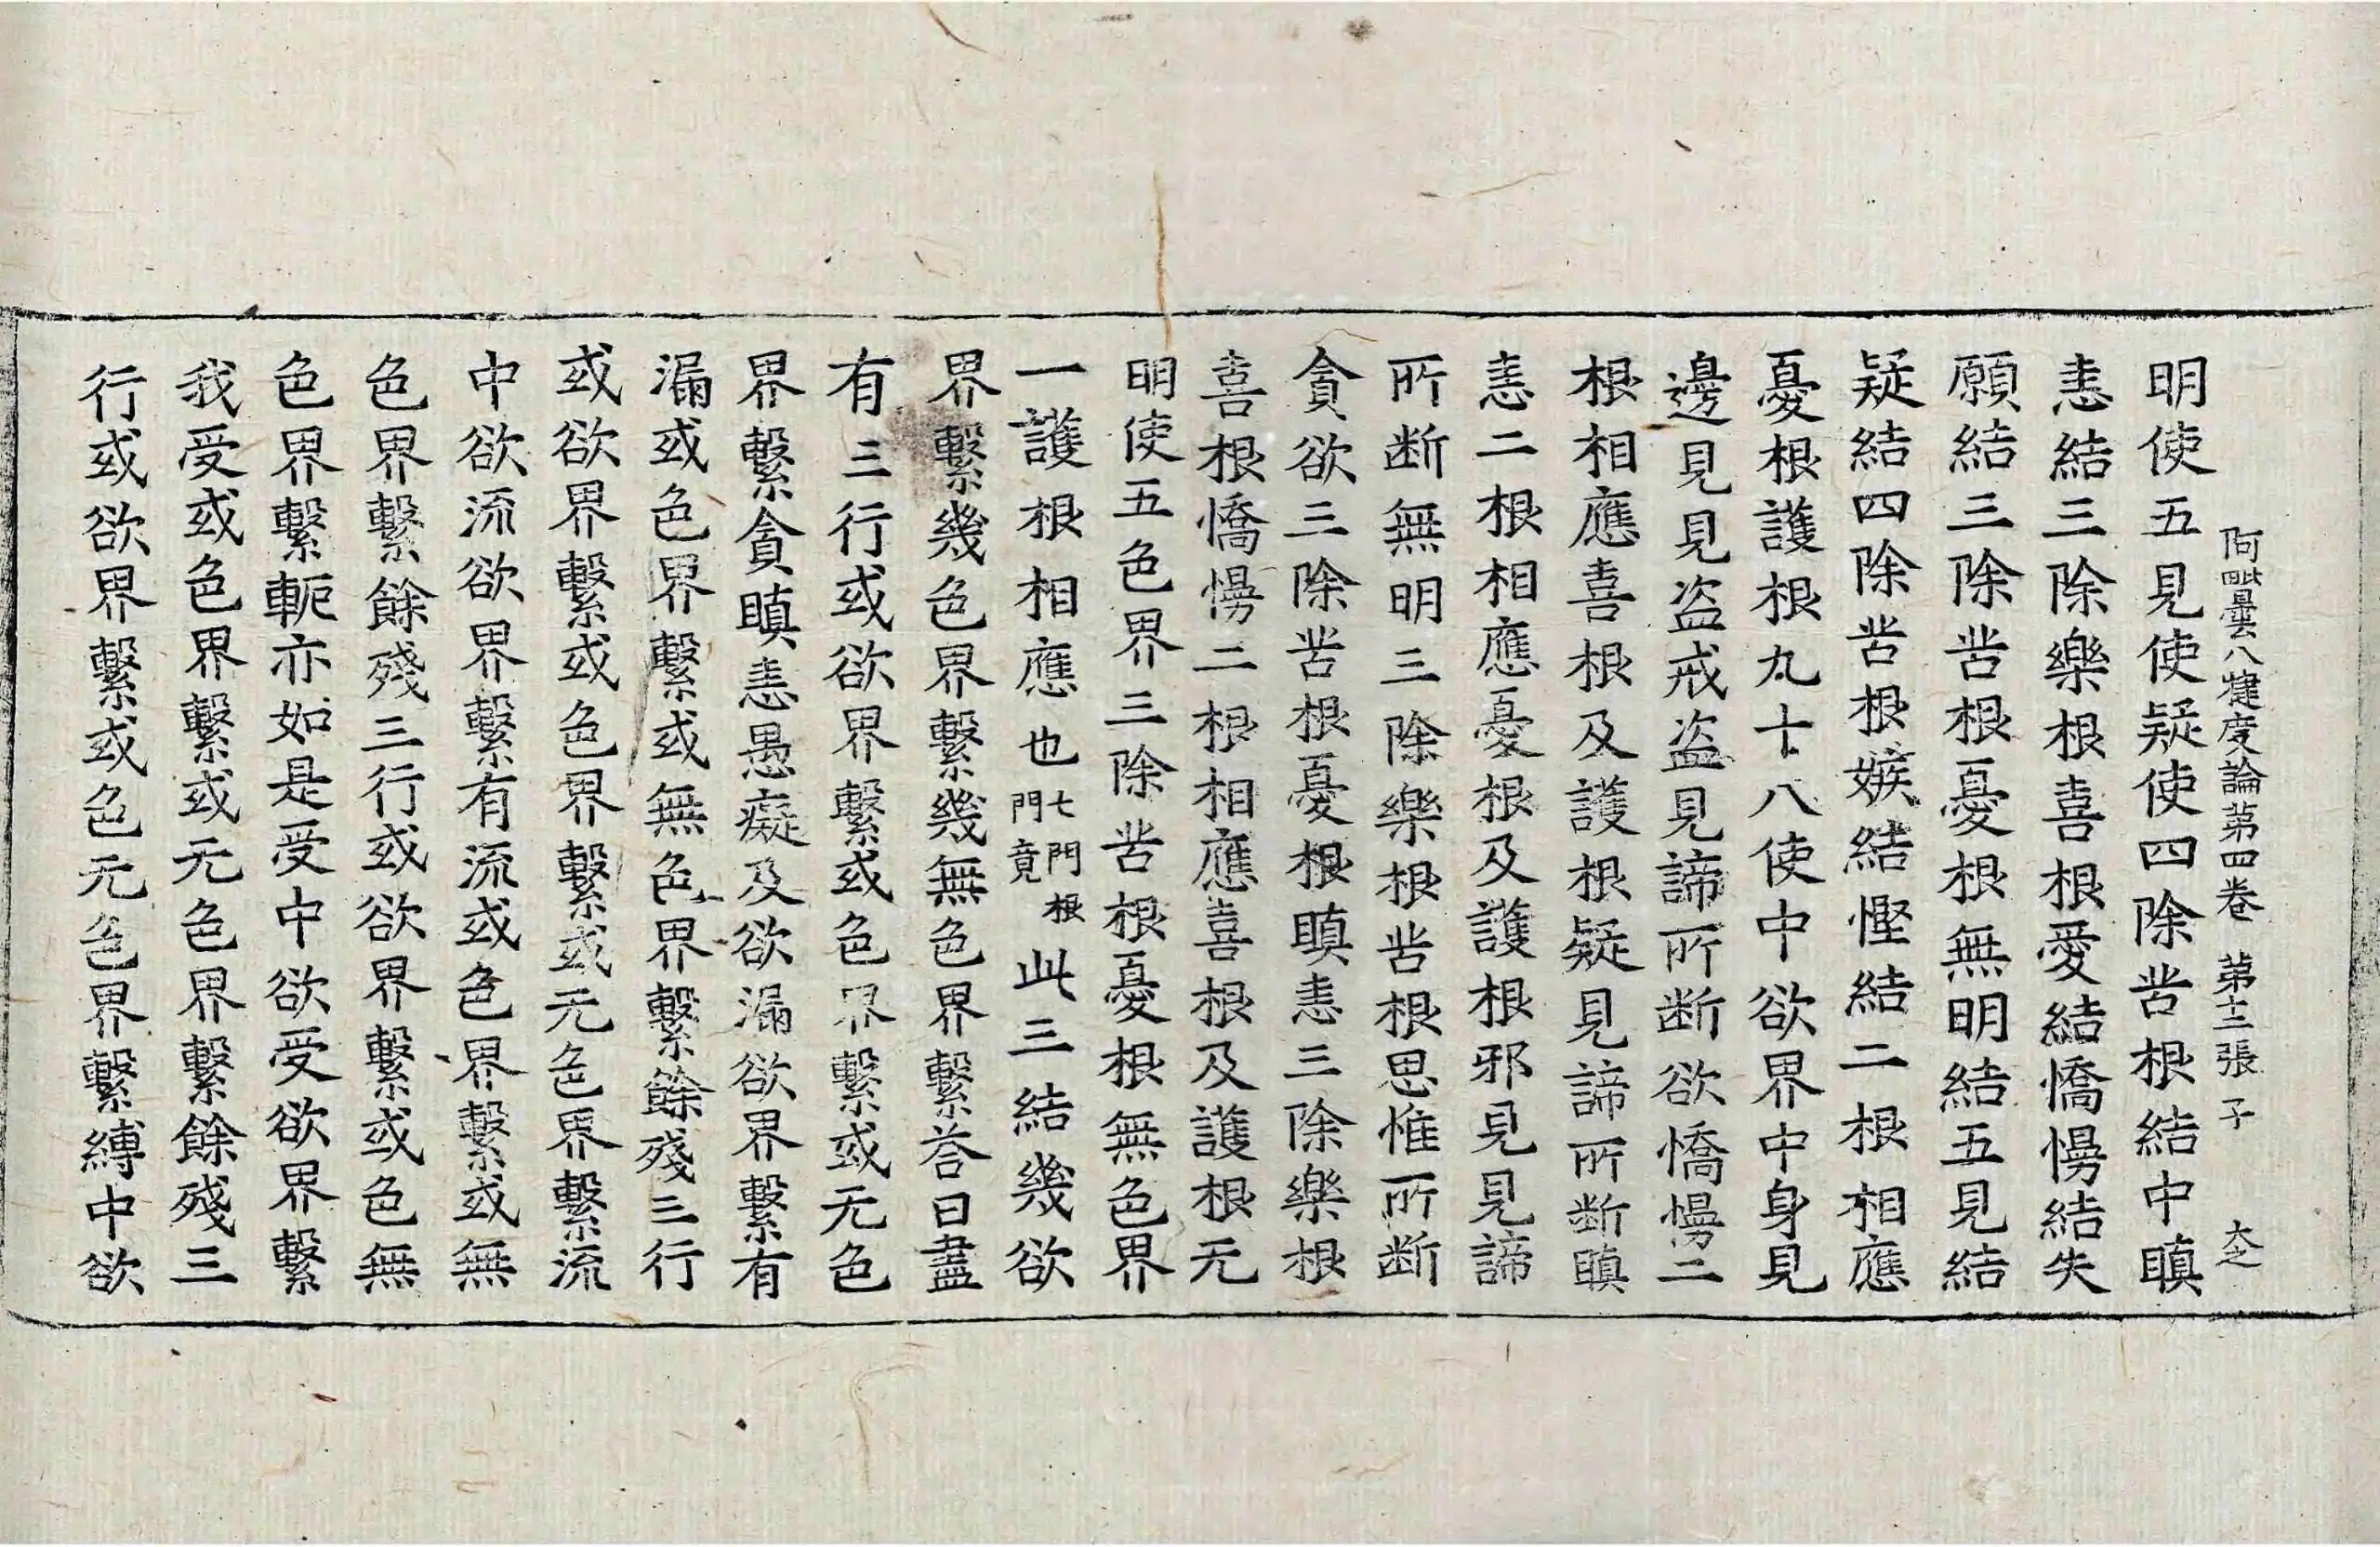 阿毗曇八犍度論第四卷 第十二張 子 大之
明使五見使疑使四除苦根結中瞋
恚結三除樂根喜根愛結憍慢結失
願結三除苦根憂根無明結五見結
疑結四除苦根嫉結慳結二根相應
憂根護根九十八使中欲界中身見
邊見見盜戒盜見諦所断欲憍慢二
根相應喜根及護根疑見諦所断瞋
恚二根相應憂根及護根邪見見諦
所断無明三除樂根苦根思惟所断
貪欲三除苦根憂根瞋恚三除樂根
喜根憍慢二根相應喜根及護根无
明使五色界三除苦根憂根無色界
一護根相應也七門根門竟此三結幾欲
界繫幾色界繫幾無色界繫荅曰盡
有三行或欲界繫或色界繫或无色
界繫貪瞋恚愚癡及欲漏欲界繫有
漏或色界繫或無色界繫餘殘三行
或欲界繫或色界繫或无色界繫流
中欲流欲界繫有流或色界繫或無
色界繫餘殘三行或欲界繫或色無
色界繫軛亦如是受中欲受欲界繫
我受或色界繫或无色界繫餘殘三
行或欲界繫或色无色界繫縛中欲